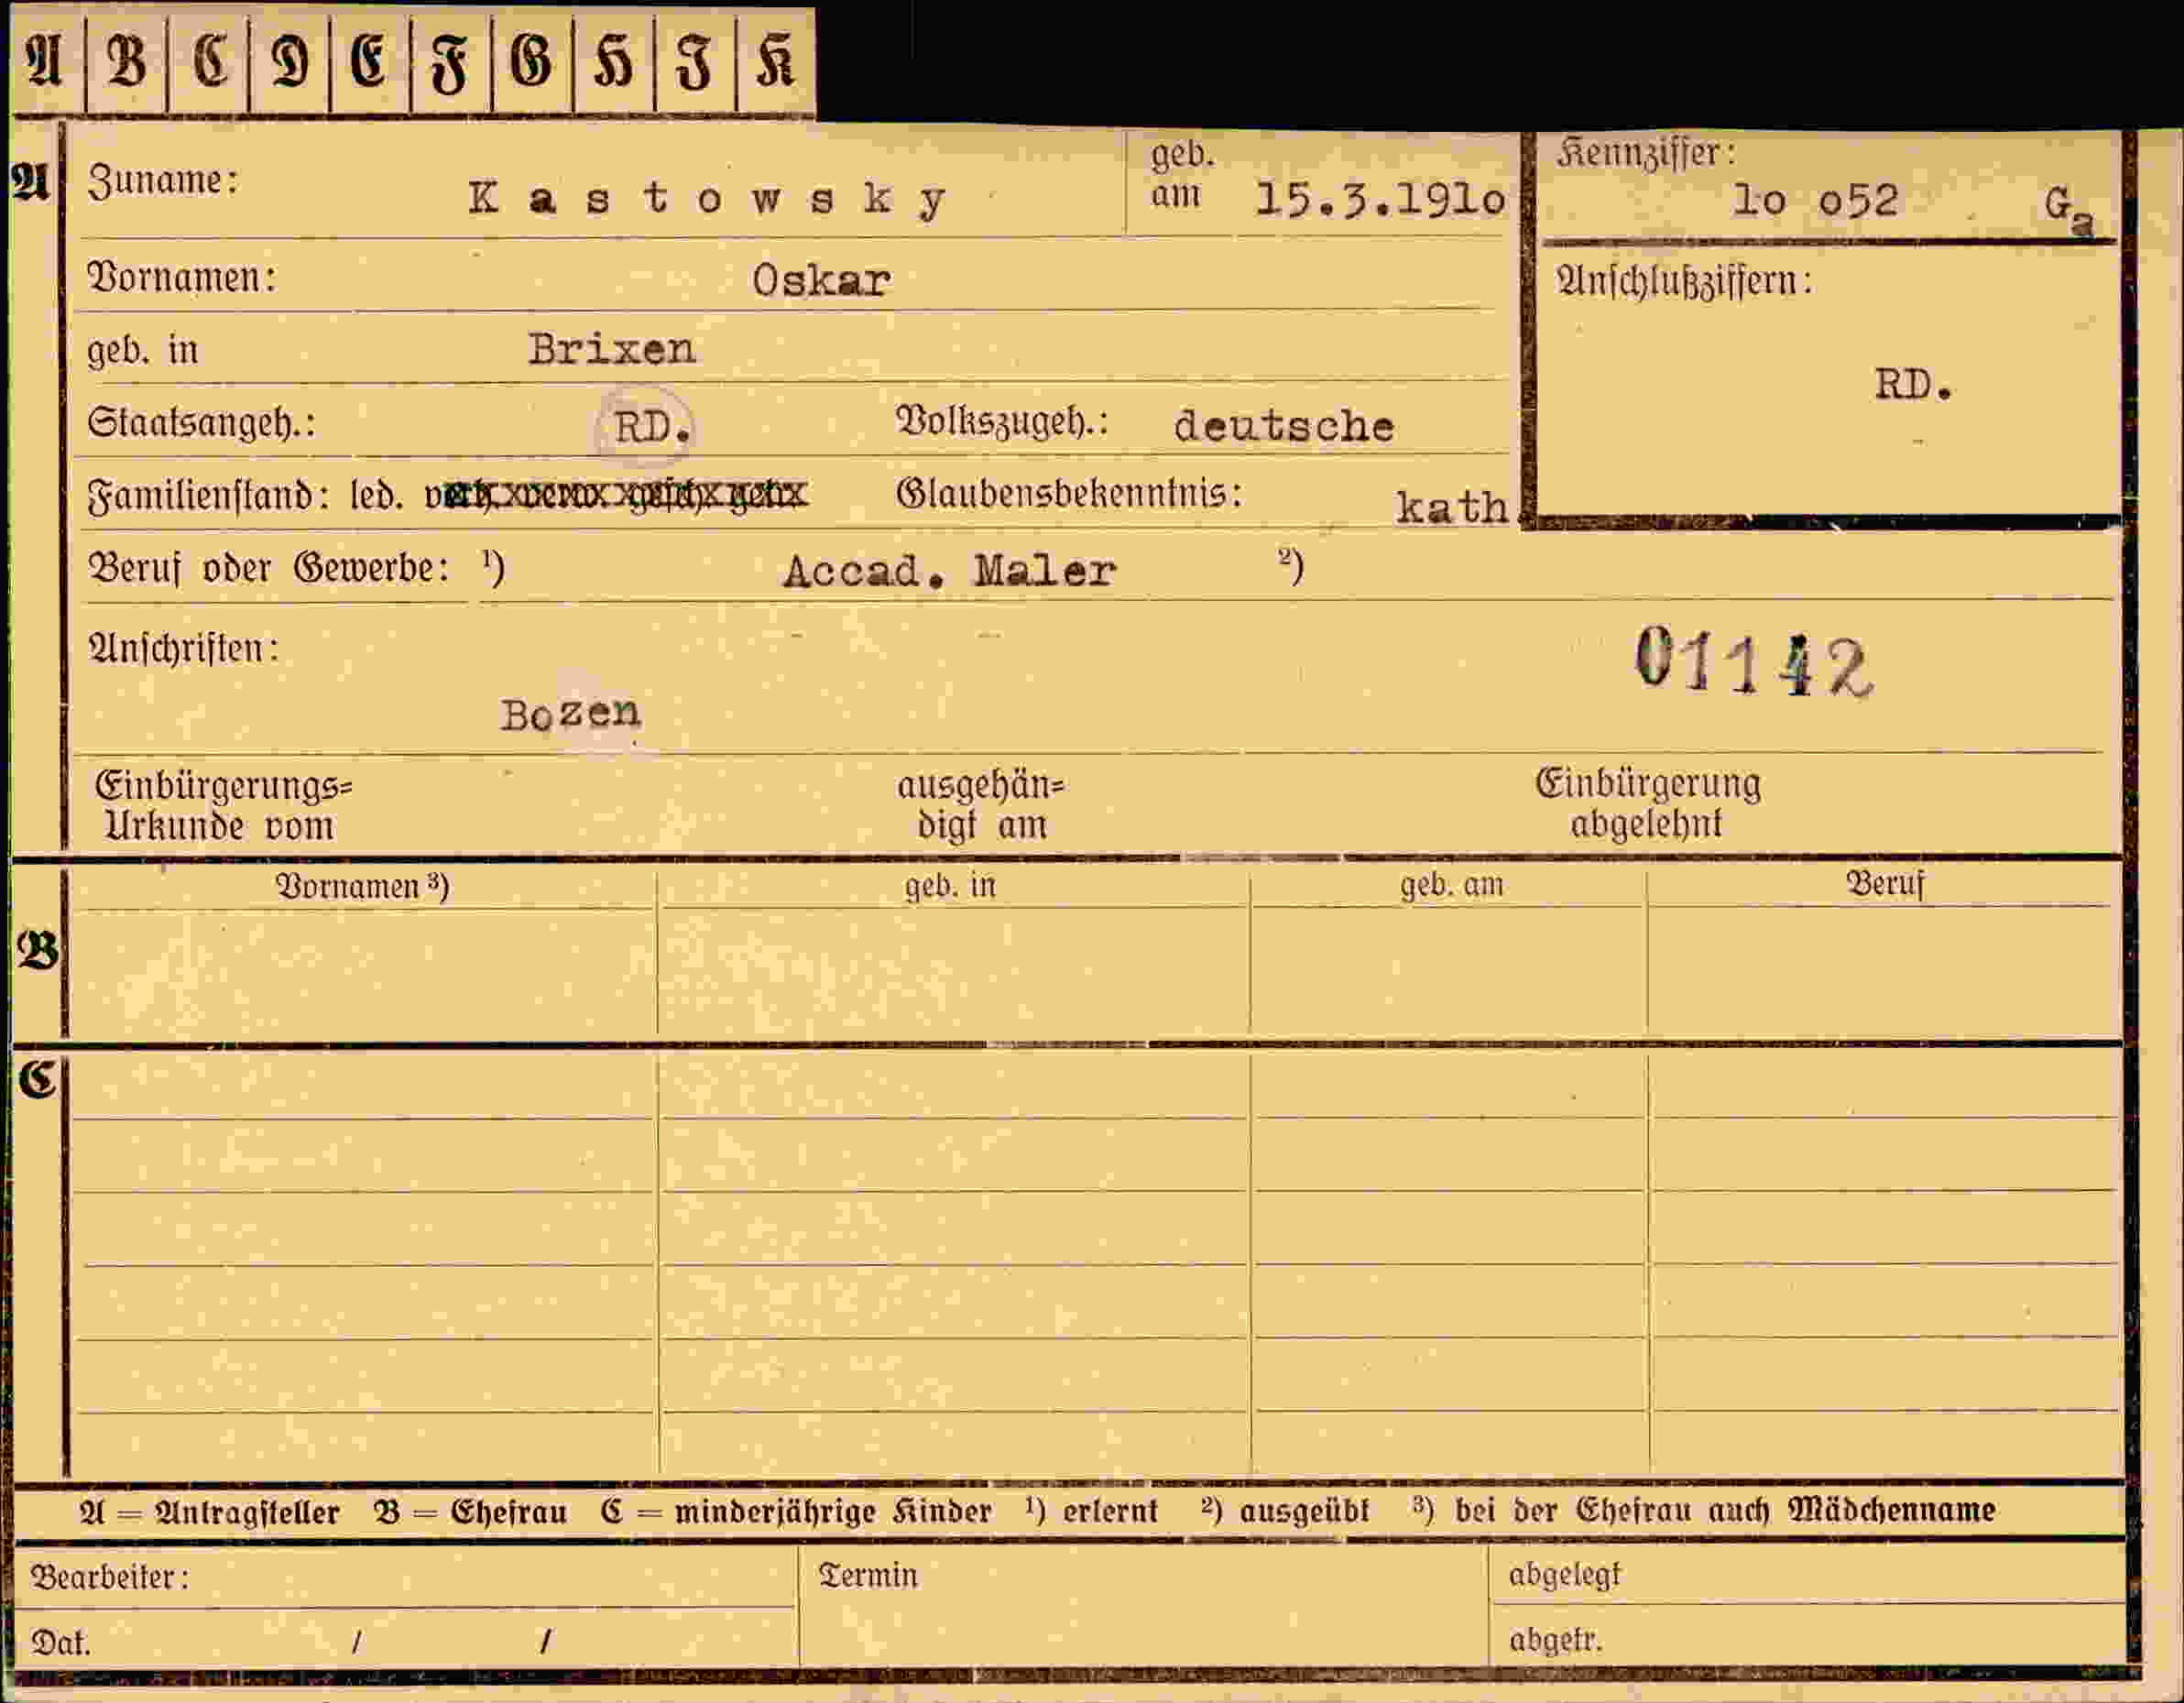 A B C D E F G H I K
A Zuname: Kastowsky geb. am 15.3.191o Kennziffer: lo o52 Ga
Vornamen: Oskar Anschlußziffern:
geb. in Brixen RD.
Staatsangeh.: RD. Volkszugeh.: deutsche
Familienstand: led. Glaubensbekenntnis: kath
Beruf oder Gewerbe: ¹) Accad. Maler ²)
Anschriften: 01142
Bozen
Einbürgerungs= ausgehän= Einbürgerung
Urkunde vom digt am abgelehnt
Vornamen ³) geb. in geb. am Beruf
B
C
A = Antragsteller B = Ehefrau C = minderjährige Kinder ¹) erlernt ²) ausgeübt ³) bei der Ehefrau auch Mädchenname
Bearbeiter: Termin abgelegt
Dat. / / abgetr.